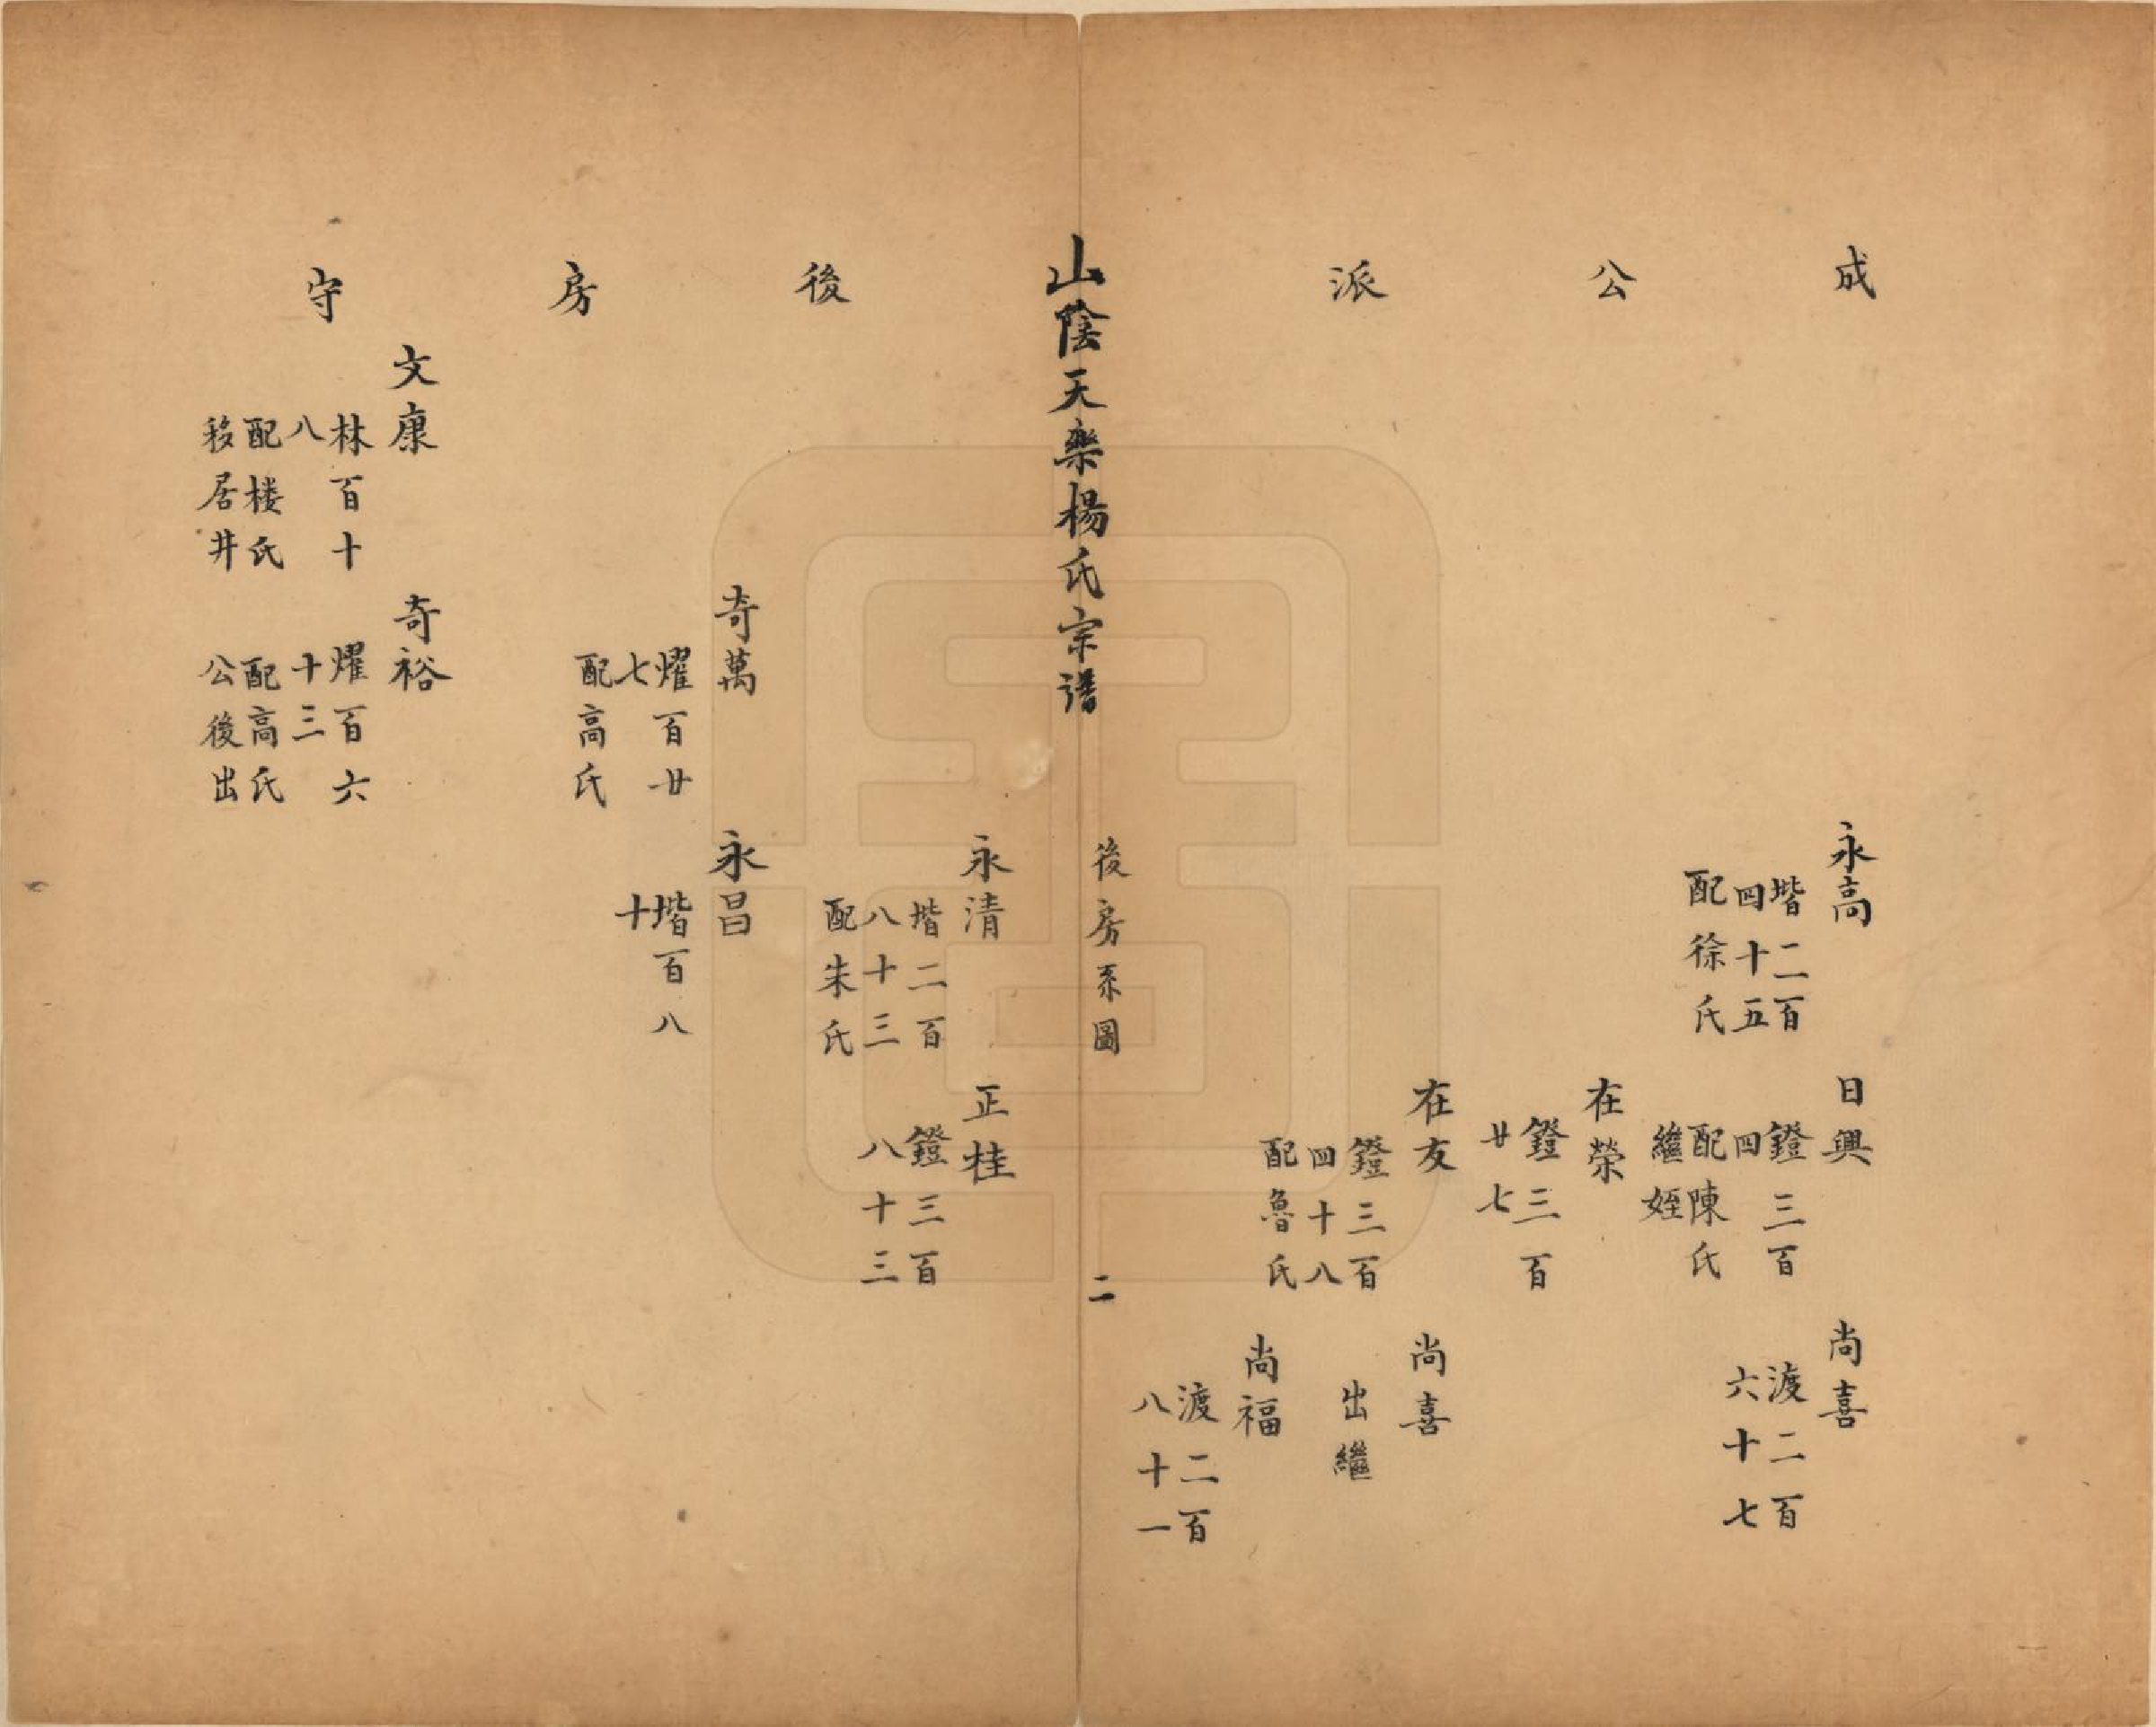 成公派
永高
堦二百
四十五
配徐氏
日興
鐙三百
四
配陳氏
繼姪
尚喜
渡二百
六十七
在榮
鐙三百
廿七
在友
鐙三百
四十八
配魯氏
尚喜
出繼
尚福
渡二百
八十一
山陰天樂楊氏宗譜
後房系圖
二
後房守
永清
堦二百
八十三
配朱氏
正桂
鐙三百
八十三
奇萬
燿百廿
七
配高氏
永昌
堦百八
十
文康
林百十
八
配楼氏
移居井
奇裕
燿百六
十三
配高氏
公後出